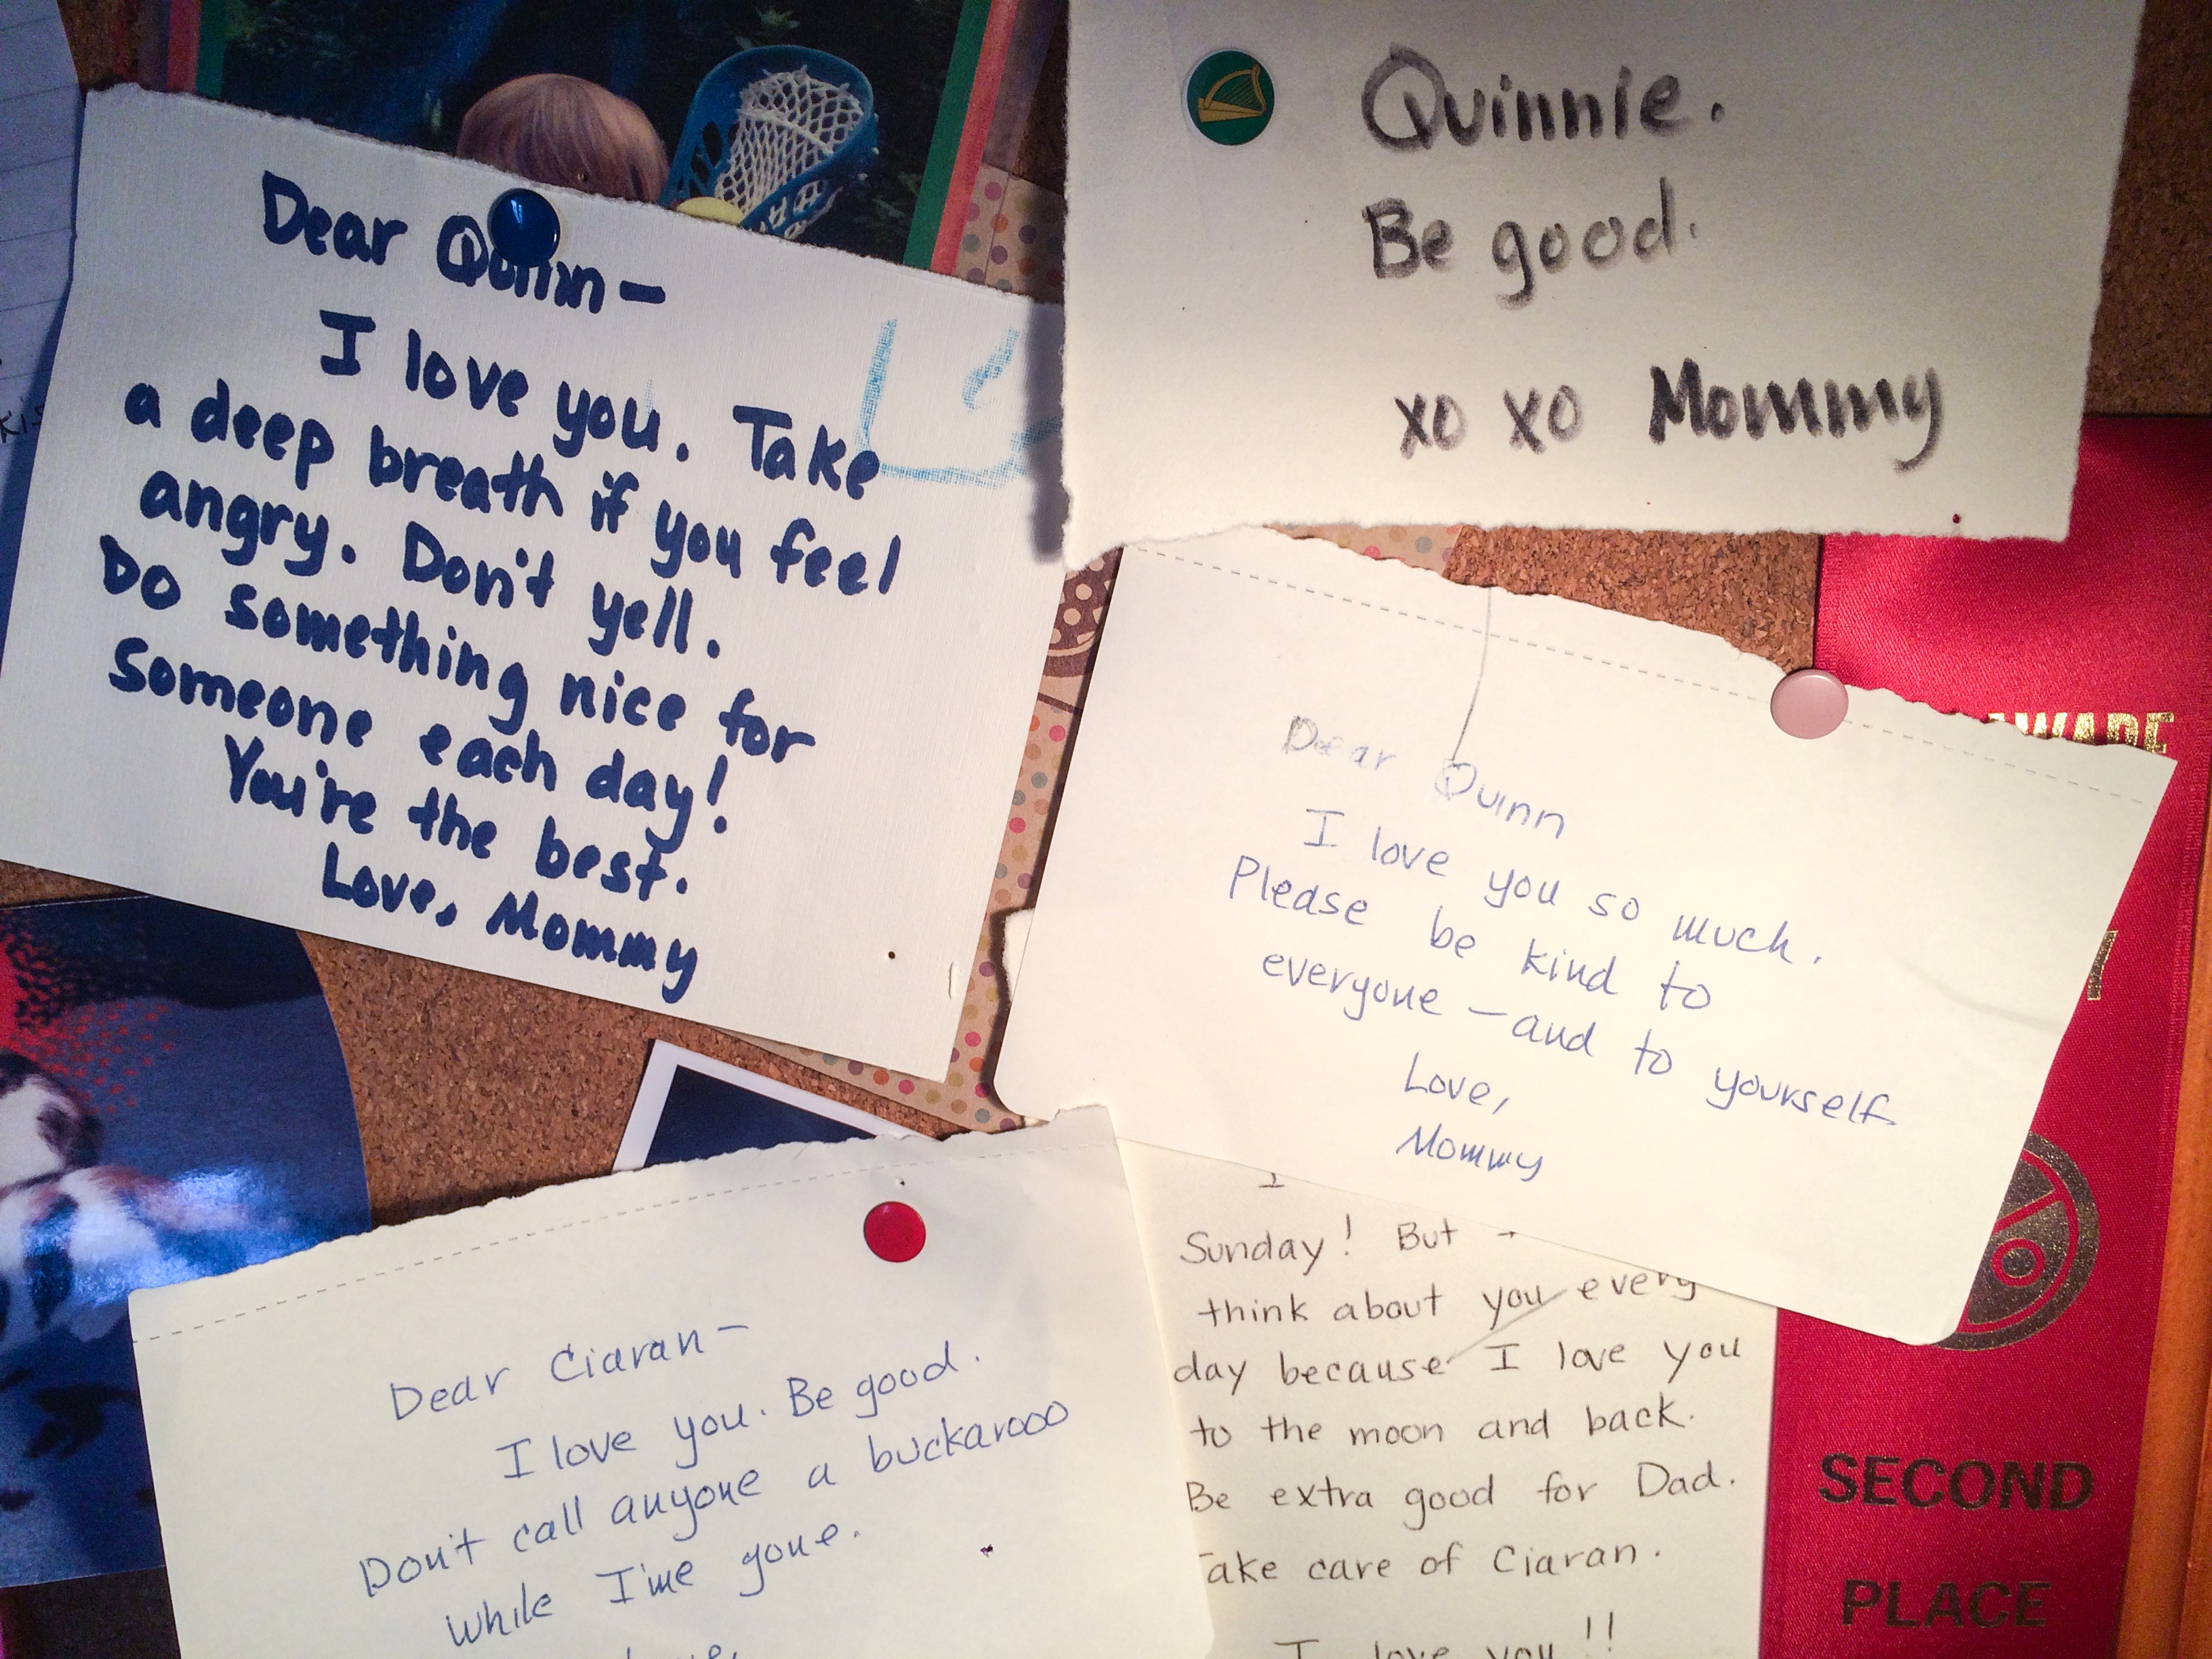 Dear Quinn—
I love you. Take
a deep breath if you feel
angry. Don't yell.
Do something nice for
someone each day!
You're the best.
Love, Mommy
Quinnie.
Be good.
xo xo Mommy
Dear Quinn
I love you so much.
Please be kind to
everyone — and to yourself
Love,
Mommy
Dear Ciaran—
I love you. Be good.
Don't call anyone a buckarooo
while I'me gone.
I
Sunday! But
think about you every
day because I love you
to the moon and back.
Be extra good for Dad.
Take care of Ciaran.
I love you!!
SECOND
PLACE